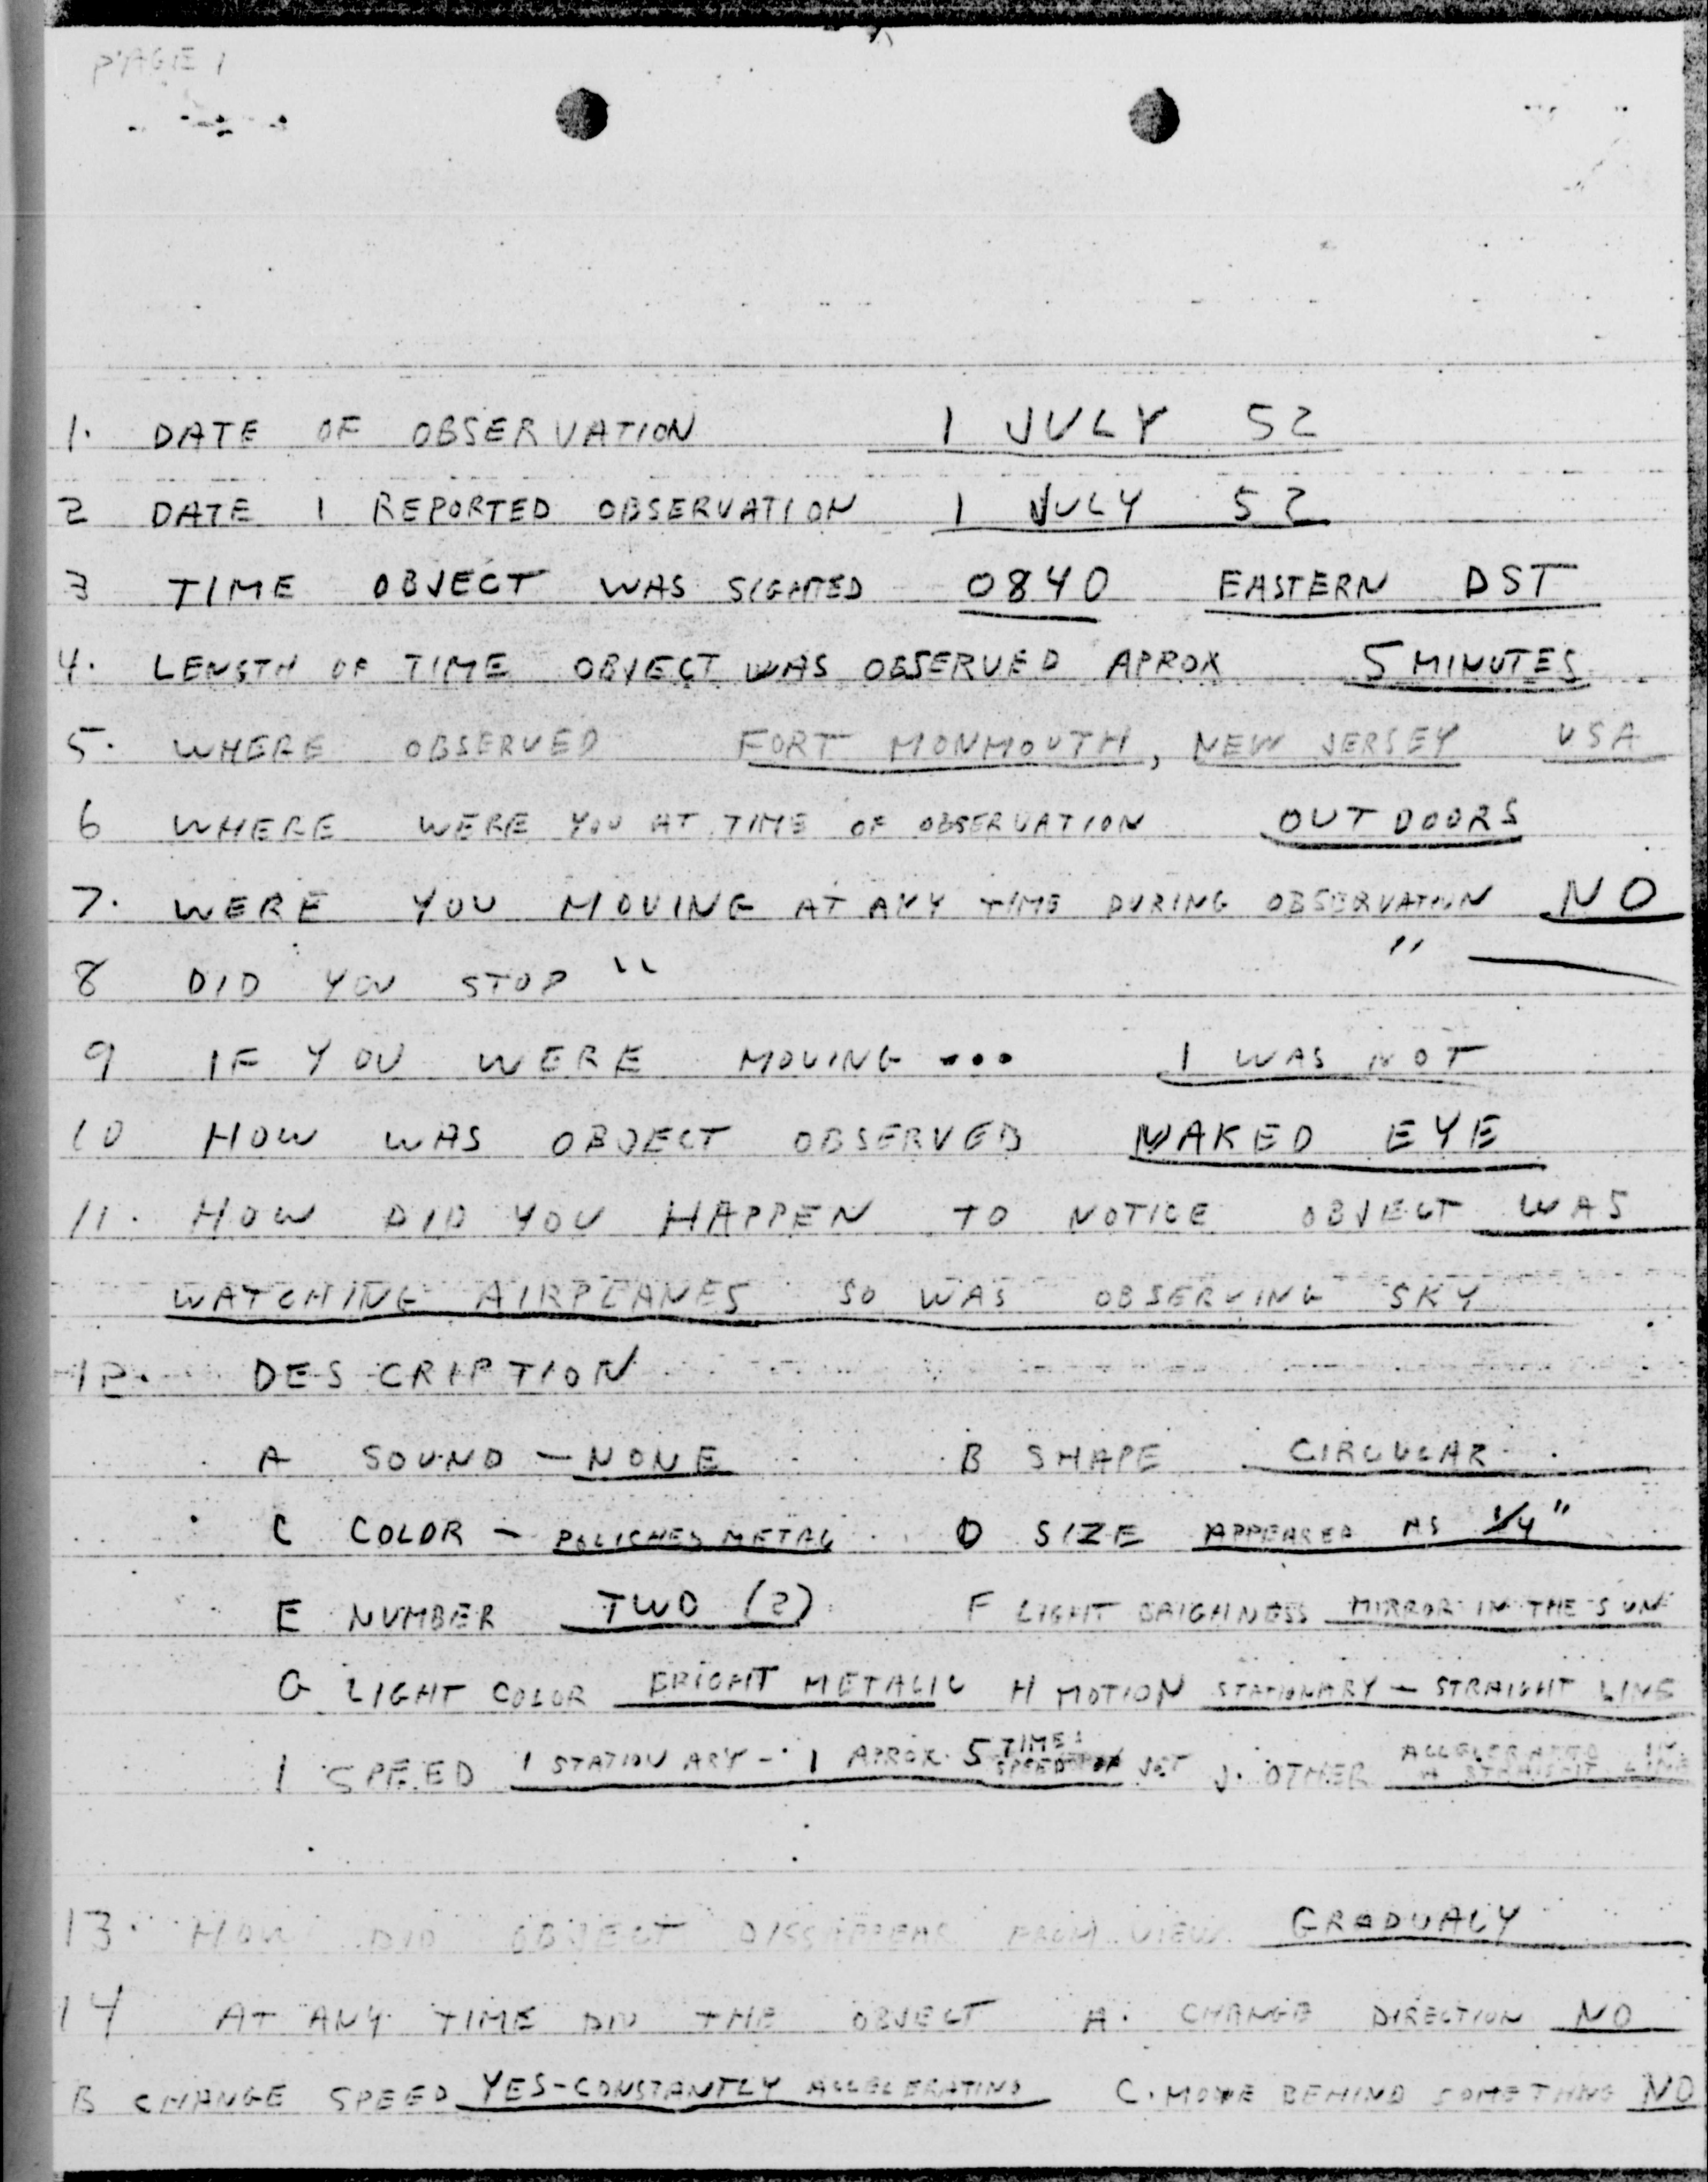 PAGE 1
1. DATE OF OBSERVATION 1 JULY 52
2 DATE I REPORTED OBSERVATION 1 JULY 52
3 TIME OBJECT WAS SIGHTED 0840 EASTERN DST
4. LENGTH OF TIME OBJECT WAS OBSERVED APROX 5 MINUTES
5. WHERE OBSERVED FORT MONMOUTH, NEW JERSEY USA
6 WHERE WERE YOU AT TIME OF OBSERVATION OUT DOORS
7. WERE YOU MOVING AT ANY TIME DURING OBSERVATION NO
8 DID YOU STOP " " —
9 IF YOU WERE MOVING ... I WAS NOT
10 HOW WAS OBJECT OBSERVED NAKED EYE
11. HOW DID YOU HAPPEN TO NOTICE OBJECT WAS
WATCHING AIRPLANES SO WAS OBSERVING SKY
12. DESCRIPTION
A SOUND - NONE B SHAPE CIRCULAR
C COLOR - POLICHED METAL D SIZE APPEARED AS 1/4"
E NUMBER TWO (2) F LIGHT BRIGHNESS MIRROR IN THE SUN
G LIGHT COLOR BRIGHT METALIC H MOTION STATIONARY - STRAIGHT LINE
I SPEED 1 STATIONARY - 1 APROX. 5 TIMES SPEED OF JET J. OTHER ACCELERATED IN A STRAIGHT LINE
13. HOW DID OBJECT DISSAPPEAR FROM VIEW GRADUALY
14 AT ANY TIME DID THE OBJECT A. CHANGE DIRECTION NO
B CHANGE SPEED YES-CONSTANTLY ACCELERATING C. MOVE BEHIND SOMETHING NO